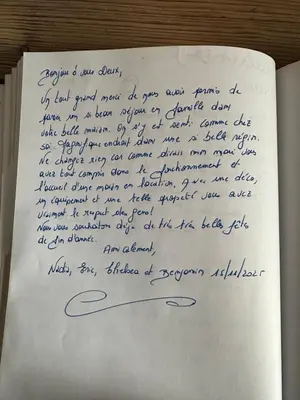 Bonjour à vous Deux,
Un tout grand merci de nous avoir permis de
faire un si beau séjour en famille dans
votre belle maison. On s'y est senti comme chez
soi. Magnifique endroit dans une si belle région.
Ne changez rien car comme dirais mon mari vous
avez tout compris dans le fonctionnement et
l'accueil d'une maison en location. Avec une déco,
un équipement et une telle propreté vous avez
vraiment le
Nous vous souhaitons déjà de très très belles fêtes
de fin d'année.
Amicalement,
Eric, et Benjamin 15/11/2025